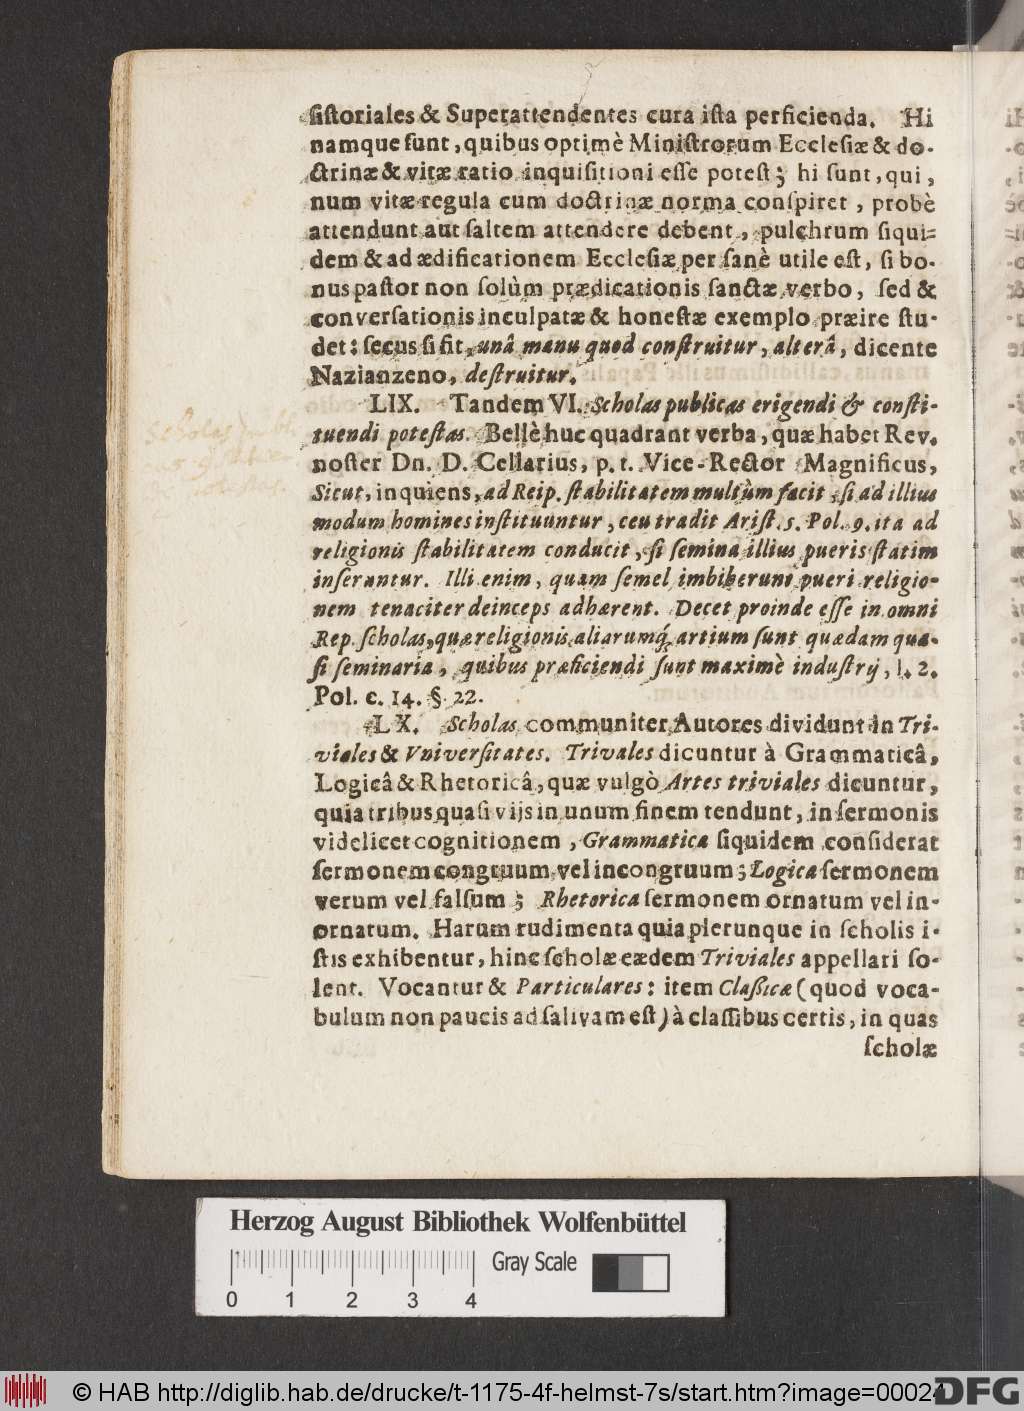 ſiſtoriales & Superattendentes cura iſta perficienda. Hi
namque ſunt, quibus optimè Miniſtrorum Eccleſiæ & do-
ctrinæ & vitæ ratio inquiſitioni eſſe poteſt; hi ſunt, qui,
num vitæ regula cum doctrinæ norma conſpiret, probè
attendunt aut ſaltem attendere debent, pulchrum ſiqui=
dem & ad ædificationem Eccleſiæ per ſanè utile eſt, ſi bo-
nus paſtor non ſolùm prædicationis ſanctæ verbo, ſed &
converſationis inculpatæ & honeſtæ exemplo præire ſtu-
det: ſecus ſi fit, unâ manu quod conſtruitur, alterâ, dicente
Nazianzeno, deſtruitur.
LIX. Tandem VI. Scholas publicas erigendi & conſti-
tuendi poteſtas. Bellè huc quadrant verba, quæ habet Rev.
noſter Dn. D. Cellarius, p. t. Vice-Rector Magnificus,
Sicut, inquiens, ad Reip. ſtabilitatem multùm facit, ſi ad illius
modum homines inſtituuntur, ceu tradit Ariſt. 5. Pol. 9. ita ad
religionis ſtabilitatem conducit, ſi ſemina illius pueris ſtatim
inſerantur. Illi enim, quam ſemel imbiberunt pueri religio-
nem tenaciter deinceps adhærent. Decet proinde eſſe in omni
Rep. ſcholas, quæ religionis aliarumq́; artium ſunt quædam qua-
ſi ſeminaria, quibus præficiendi ſunt maximè induſtrij, l. 2.
Pol. c. 14. §. 22.
LX. Scholas communiter Autores dividunt in Tri-
viales & Vniverſitates. Trivales dicuntur à Grammaticâ,
Logicâ & Rhetoricâ, quæ vulgò Artes triviales dicuntur,
quia tribus quaſi vijs in unum finem tendunt, in ſermonis
videlicet cognitionem, Grammatica ſiquidem conſiderat
ſermonem congruum vel incongruum; Logica ſermonem
verum vel falſum; Rhetorica ſermonem ornatum vel in-
ornatum. Harum rudimenta quia plerunque in ſcholis i-
ſtis exhibentur, hinc ſcholæ eædem Triviales appellari ſo-
lent. Vocantur & Particulares: item Claßicæ (quod voca-
bulum non paucis ad ſalivam eſt) à claſſibus certis, in quas
ſcholæ
Herzog August Bibliothek Wolfenbüttel
Gray Scale
0 1 2 3 4
© HAB http://diglib.hab.de/drucke/t-1175-4f-helmst-7s/start.htm?image=00024
DFG